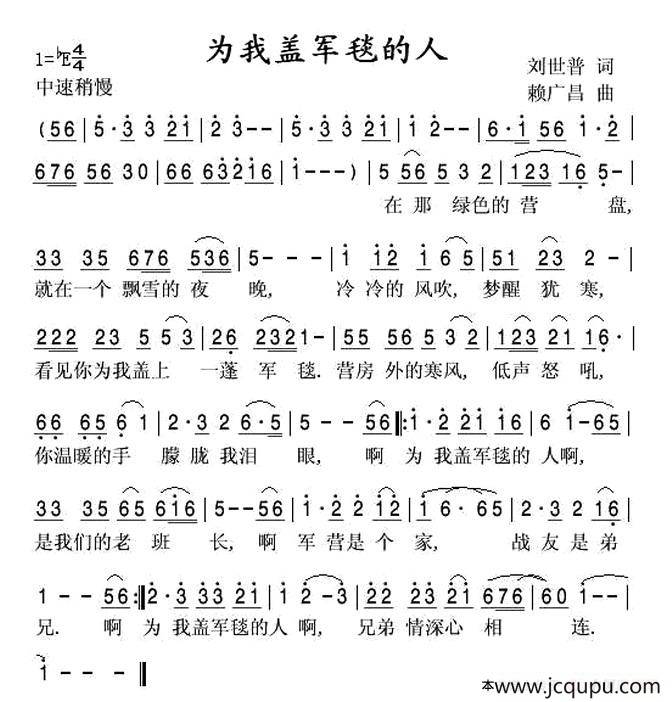 为我盖军毯的人
1=♭E 4/4
中速稍慢
刘世普 词
赖广昌 曲
(56 | 5·3 3 21 | 2 3-- | 5·3 3 21 | 1 2-- | 6·1 56 1·2 |
676 56 30 | 66 63216 | 1---) | 5 56 5 3 2 | 123 16 5- |
在 那 绿色的 营 盘,
33 35 676 536 | 5--- | 1 12 1 6 5 | 51 23 2- |
就在一个 飘雪的 夜 晚, 冷 冷的 风吹, 梦醒 犹 寒,
222 23 5 53 | 26 2321- | 55 56 5 3 2 | 123 21 16· |
看见你为我盖上 一蓬 军 毯. 营房 外的寒风, 低声 怒 吼,
66 65 6 1 | 2·3 2 6·5 | 5 - - 56 |: 1·2 21 16 | 6 1-65 |
你温暖的手 朦胧 我泪 眼, 啊 为 我盖军毯的 人啊,
33 35 65 616 | 5--56 | 1·2 2 12 | 1 6· 65 | 2·3 2 16 |
是我们的老 班 长, 啊 军 营是 个 家, 战友 是 弟
1 - - 56 :| 2·3 33 21 | 1 2 -3 | 22 23 21 676 | 60 1-- |
兄. 啊 为 我盖军毯的人 啊, 兄弟 情深心 相 连.
1 - - |
本www.jcqupu.com